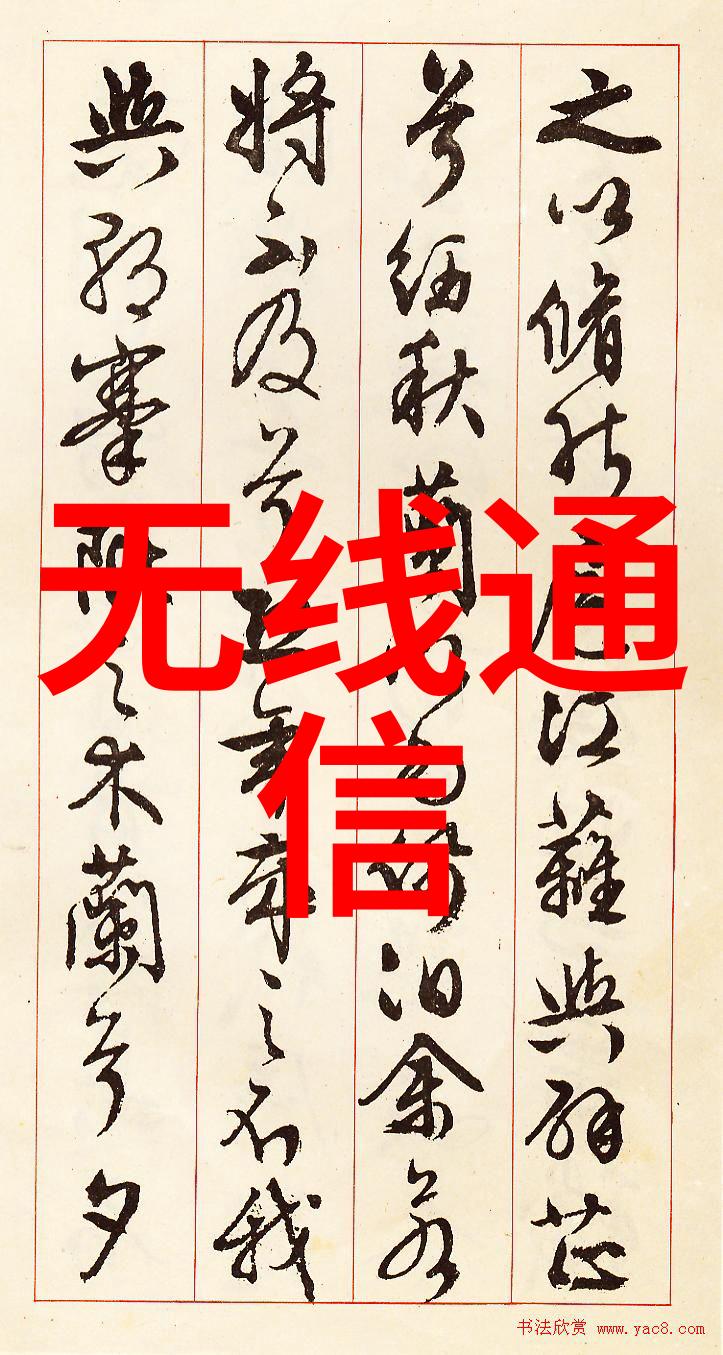 之以脩能扈江蘺與辟芷
兮紉秋蘭以為佩汨余若
將不及兮恐年歲之不我
與朝搴阰之木蘭兮夕
无线通
信
书法欣赏 www.yac8.com